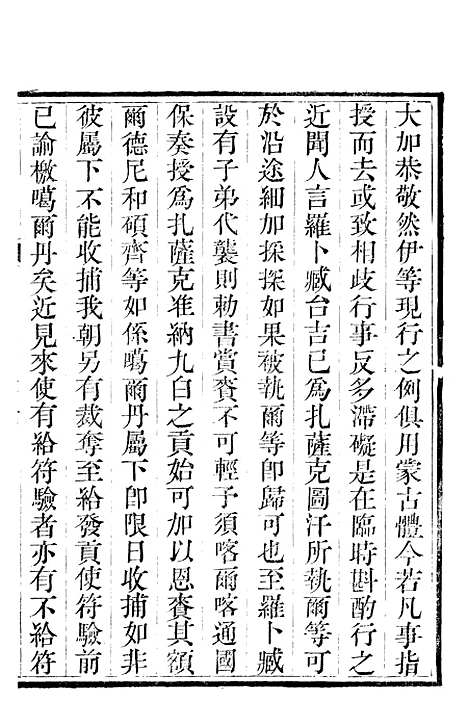 大加恭敬然伊等現行之例俱用蒙古體今若凡事指
授而去或致相歧行事反多滯礙是在臨時斟酌行之
近聞人言羅卜臧台吉已爲扎薩克圖汗所執爾等可
於沿途細加探採如果被執爾等卽歸可也至羅卜臧
設有子弟代襲則勅書賞賚不可輕予須喀爾喀通國
保奏授爲扎薩克准納九白之貢始可加以恩賚其額
爾德尼和碩齊等如係噶爾丹屬下卽限日收捕如非
彼屬下不能收捕我朝另有裁奪至給發貢使符驗前
已諭檄噶爾丹矣近見來使有給符驗者亦有不給符